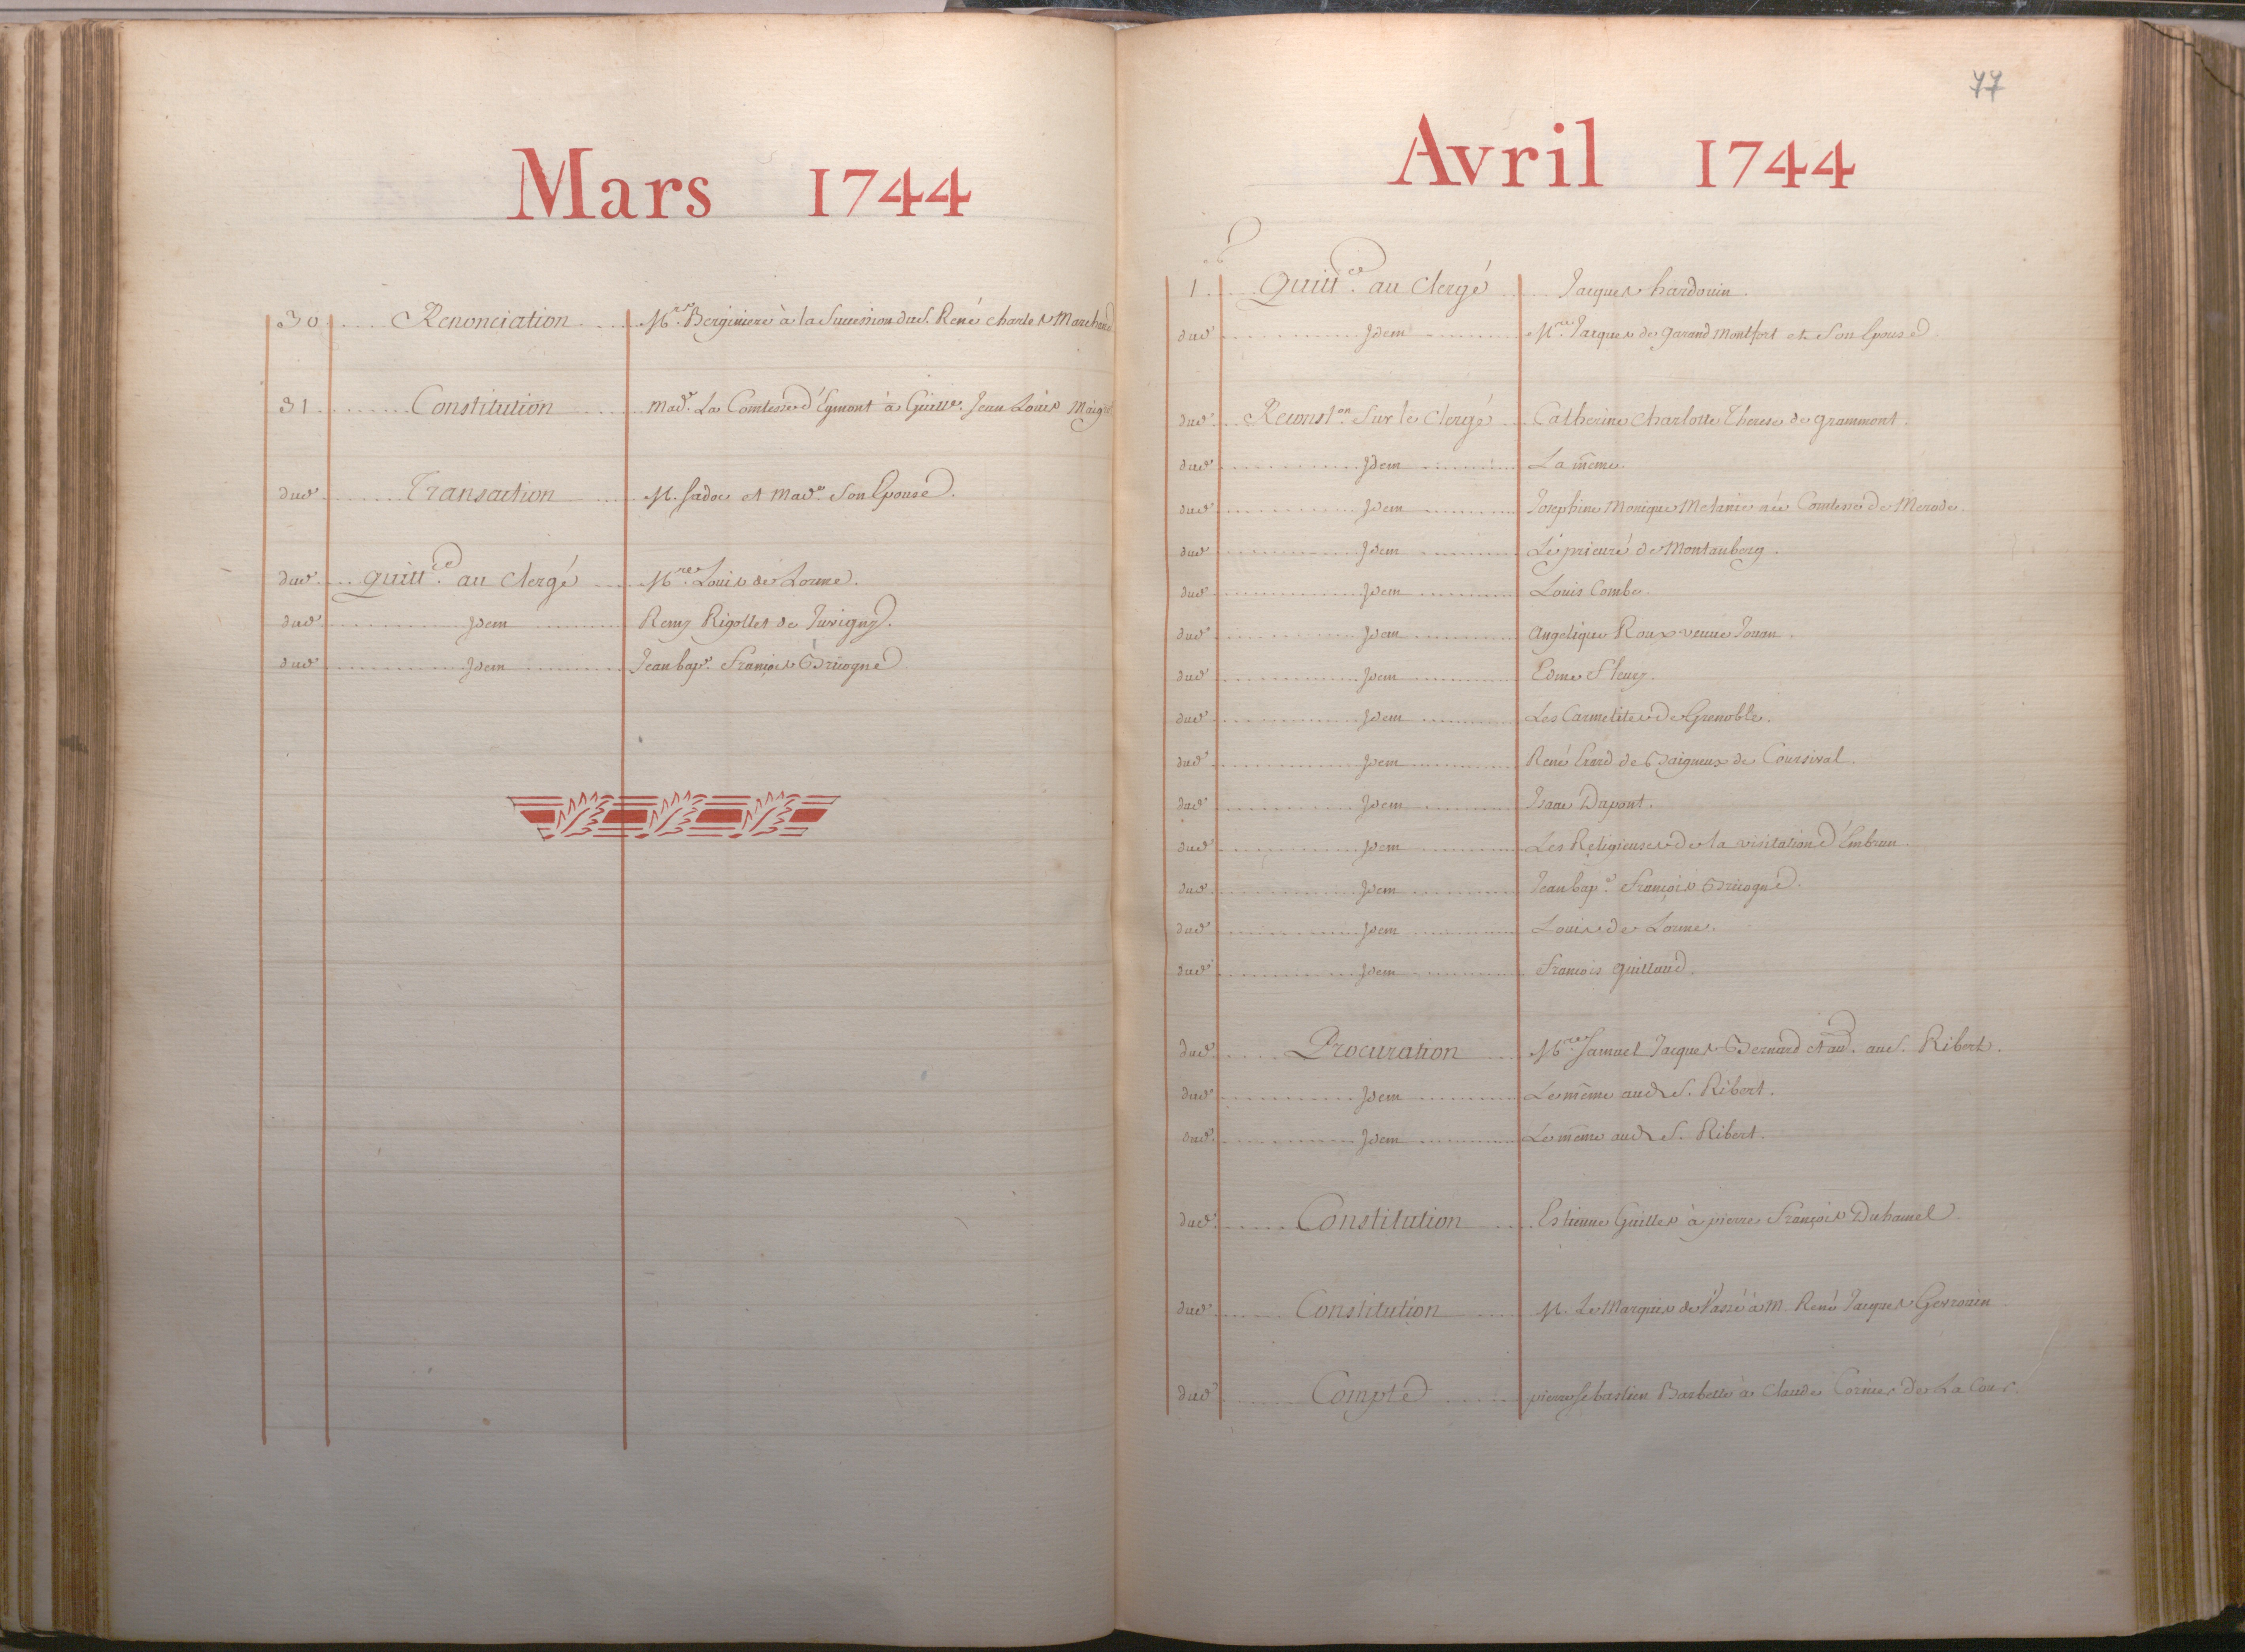 Mars 1744
30 Renonciation Mr. Berginiere à la Succession du S. René charles Marchand
31 Constitution Made. La Comtesse d'Egmont à Guille. Jean Louis
dud. Transaction M. Sadoc et Made. Son Epouse.
dud. Quitt.ce au Clergé M.re Louis de Lorme.
dud. Idem Remy Rigollet de Juvigny.
dud. Idem Jean bap.e François Bricogne
77
Avril 1744
1.er Quitt.ce au Clergé Jacques hardouin
dud. Idem M.re Jacques de garand Montfort et Son Epouse
dud. Reconst.on Sur le Clergé Catherine Charlotte Therese de grammont.
dud. Idem La même.
dud. Idem Josephine Monique Melanie née Comtesse de Merode.
dud. Idem Le prieuré de Montauberg.
dud. Idem Louis Combe.
dud. Idem Angelique Roux veuve Jouan.
dud. Idem Edme Fleury.
dud. Idem Les Carmelites de Grenoble.
dud. Idem René Erard de Baigneux de Coursival.
dud. Idem Isaac Dapont.
dud. Idem Les Religieuses de la visitation d'Embrun.
dud. Idem Jean bap.e François Bricogne.
dud. Idem Louis de Lorme.
dud. Idem François guillaud.
dud. Procuration M.re Samuel Jacques Bernard et au. au S. Ribert.
dud. Idem Le même aud. S. Ribert.
dud. Idem Le même aud. S. Ribert.
dud. Constitution Estienne Guilles à pierre François Duhamel
dud. Constitution M. Le Marquis de Vassé à M. René Jacques Gervain
dud. Compte pierre Sebastien Barbette à Claude Cornier de La Cour.